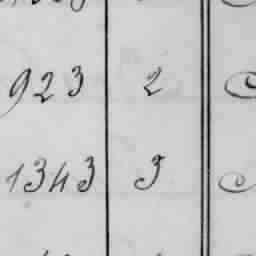 923 2
1343 3